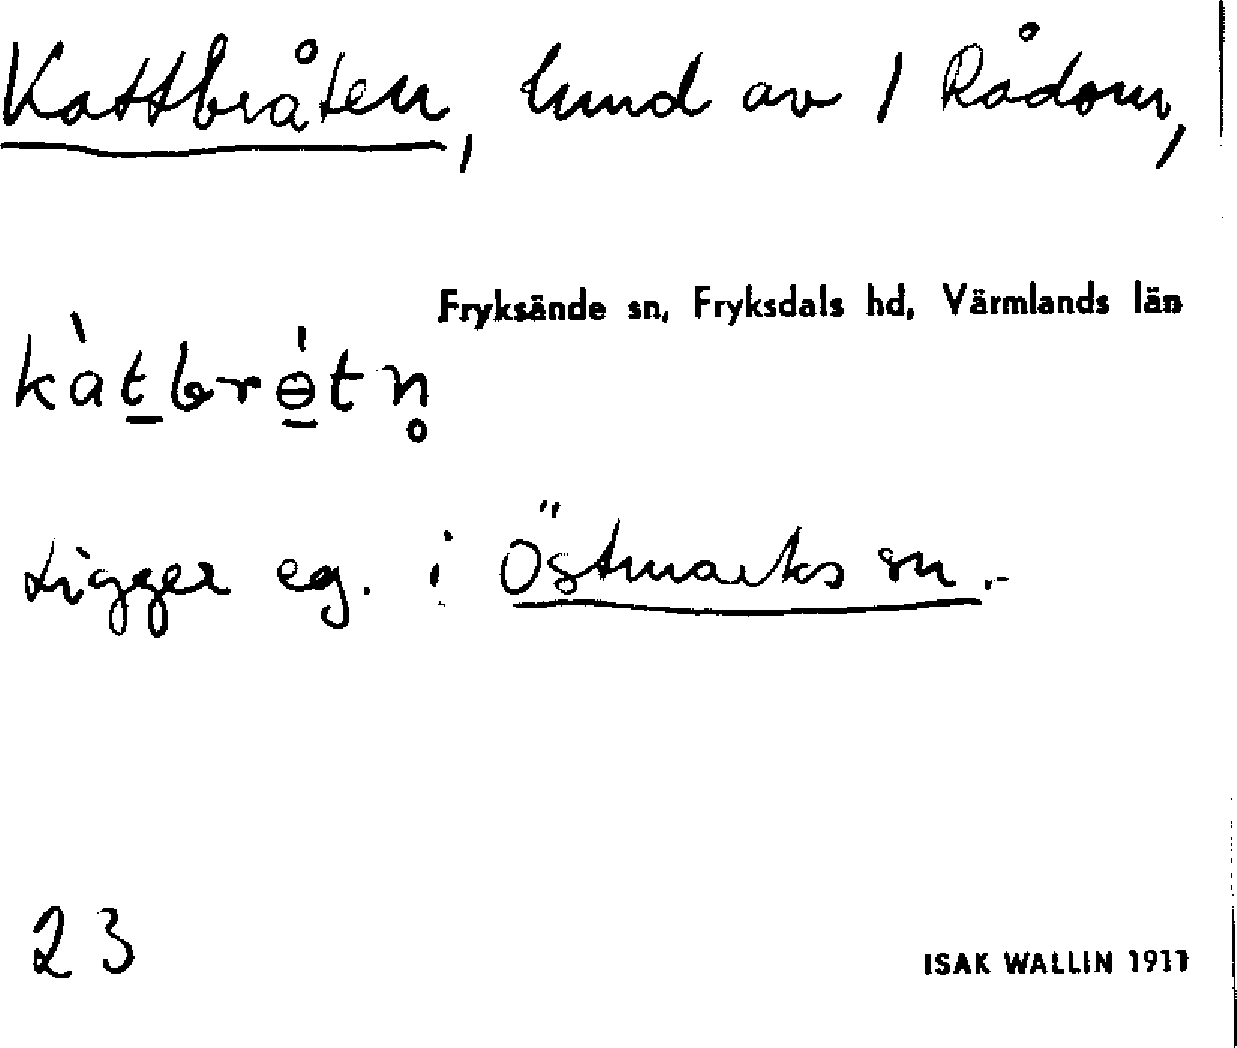 Kattbråten, lund av 1 Rådom,
Fryksände sn, Fryksdals hd, Värmlands län
kàt̲brө̲́tn̥
Ligger eg. i Östmarks sn.-
23
ISAK WALLIN 1911